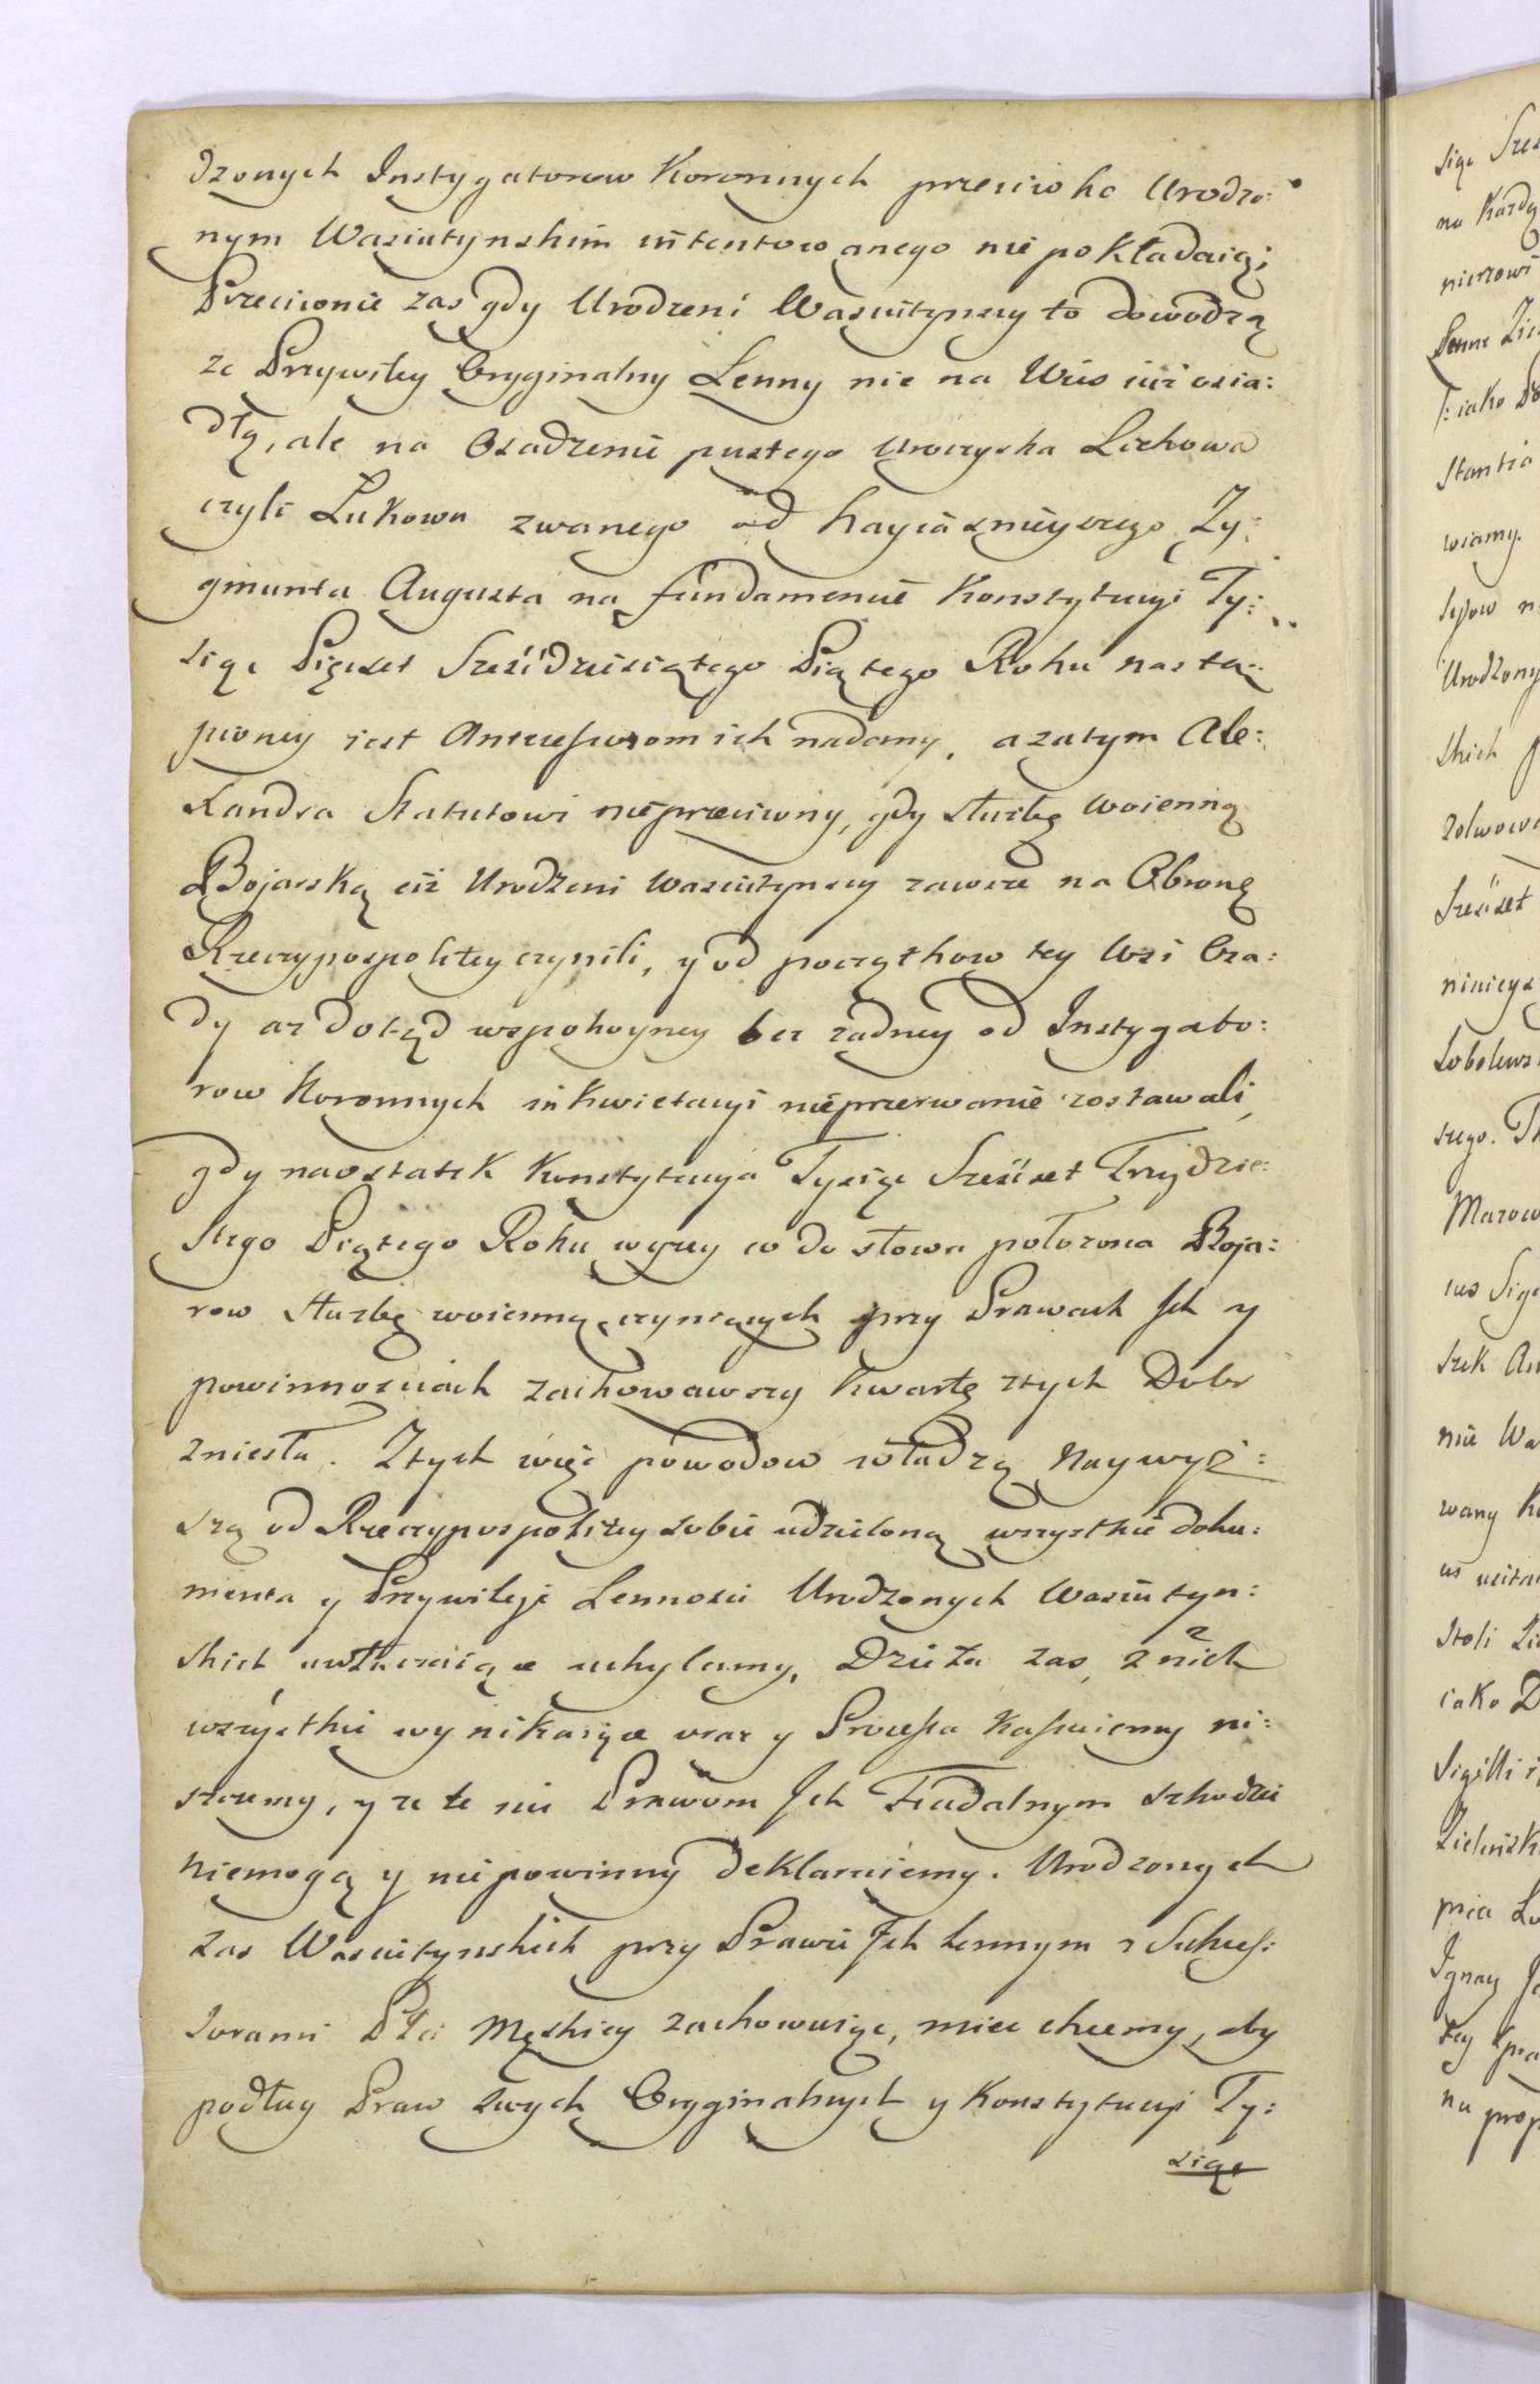 dzonych Instygatorow Koronnych przeciwko Urodzo:
nym Wasiutynskim intentowanego nie pokładaią;
Przeciwnie zas gdy Urodzeni Wasiutynscy to dowodzą
ze Przywiley Oryginalny Lenny nie na Wies iuż osia:
dłą, ale na Osadzenie pustego Uroczyska Lichowa
czyli Łukowa zwanego od Nayiasnieyszego Zy:
gmunta Augusta na fundamencie Konstytucyi Ty:
siąc Pięcset Sześćdziesiątego Piątego Roku nastą:
pioney iest Antecessorom ich nadany, a zatym Ale:
xandra Statutowi nieprzeciwny, gdy służbę woienną
Bojarską ciż Urodzeni Wasiutynscy zawsze na Obronę
Rzeczypospolitey czynili, y od początkow tey Wsi Osa:
dy az dotąd wspokoyney bez zadney od Instygato:
row Koronnych inkwietacyi nieprzerwanie zostawali,
gdy naostatek Konstytucya Tysiąc Sześćset Trzydzie:
stego Piątego Roku wyzey co do słowa położona Boja:
row służbę woienną czyniących przy Prawach Ich y
powinnosciach zachowawszy kwartę ztych Dobr
zniosła. Ztych więc powodow władzą Naywyż:
szą od Rzeczypospolitey sobie udzieloną wszystkie doku:
menta y Przywileje Lennosci Urodzonych Wasiutyn:
skich uwłaczaiące uchylamy, Dzieła zas z nich
wszystkie wynikaiące oraz y Processa kassuiemy ni:
szczemy, y ze te nic Prawom Ich Feudalnym szkodzić
niemogą y niepowinny deklaruiemy. Urodzonych
zas Wasiutynskich przy Prawie Ich Lennym z Sukces:
sorami Płci Męskiey zachowuiąc, miec chcemy, aby
podług Praw swych Oryginalnych y Konstytucyi Ty:
siąc